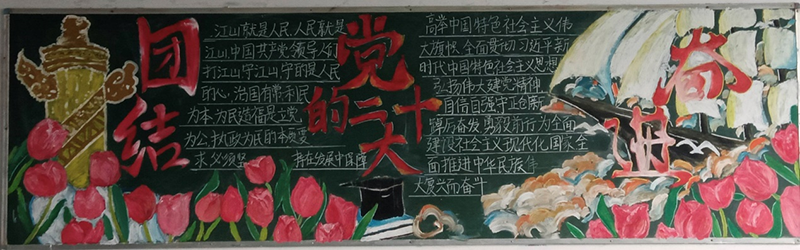 团结
江山就是人民，人民就是
江山中国共产党领导人们
打江山守江山，守的是人民
的心，治国有常利民
为本，为民造福是立党
为公，执政为民的本质要
求必须坚 持在发展中保障
党
的二十
大
高举中国特色社会主义伟
大旗帜，全面贯彻习近平新
时代中国特色社会主义思想
弘扬伟大建党精神，
自信自强守正创新
踔厉奋发勇毅前行为全面
建设社会主义现代化国家全
面推进中华民族伟
大复兴而奋斗
奋
进